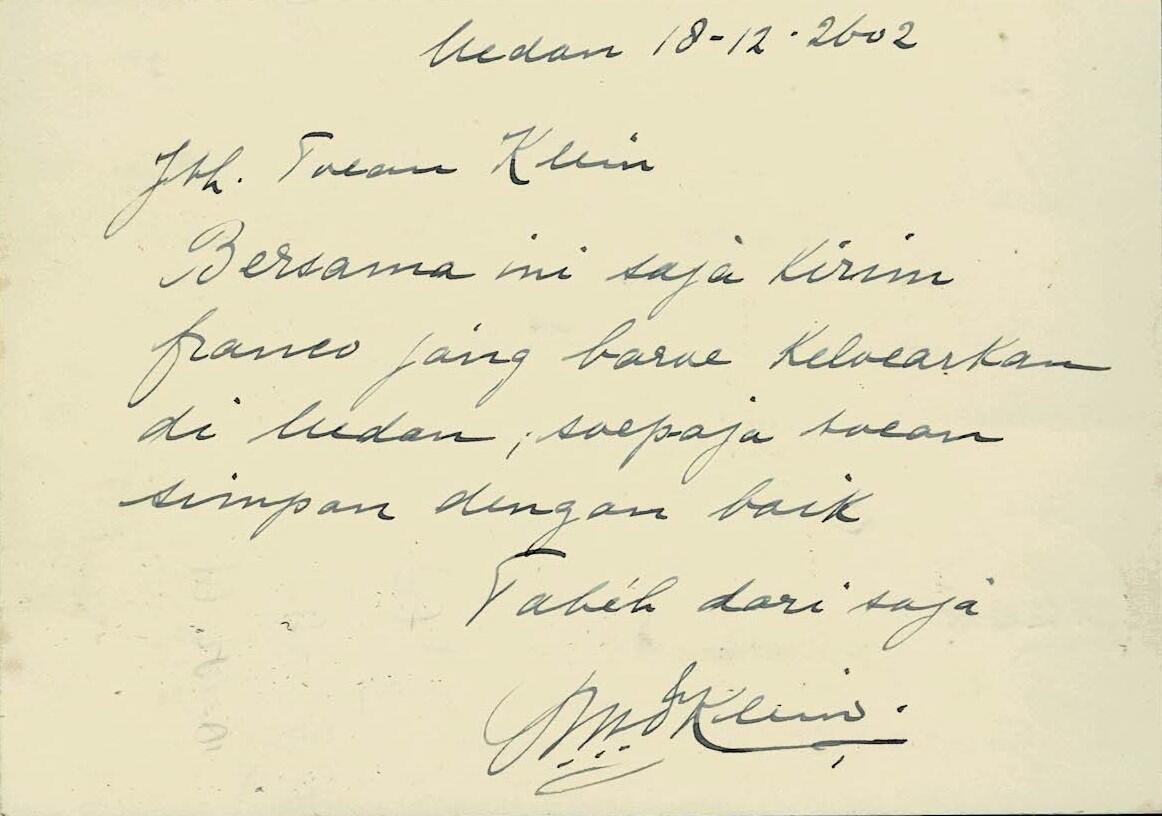 Medan 18-12-2602
Jth. Toean Klein
Bersama ini saja kirim
franco jang baroe keloearkan
di Medan, soepaja toean
simpan dengan baik
Tabéh dari saja
Klein.